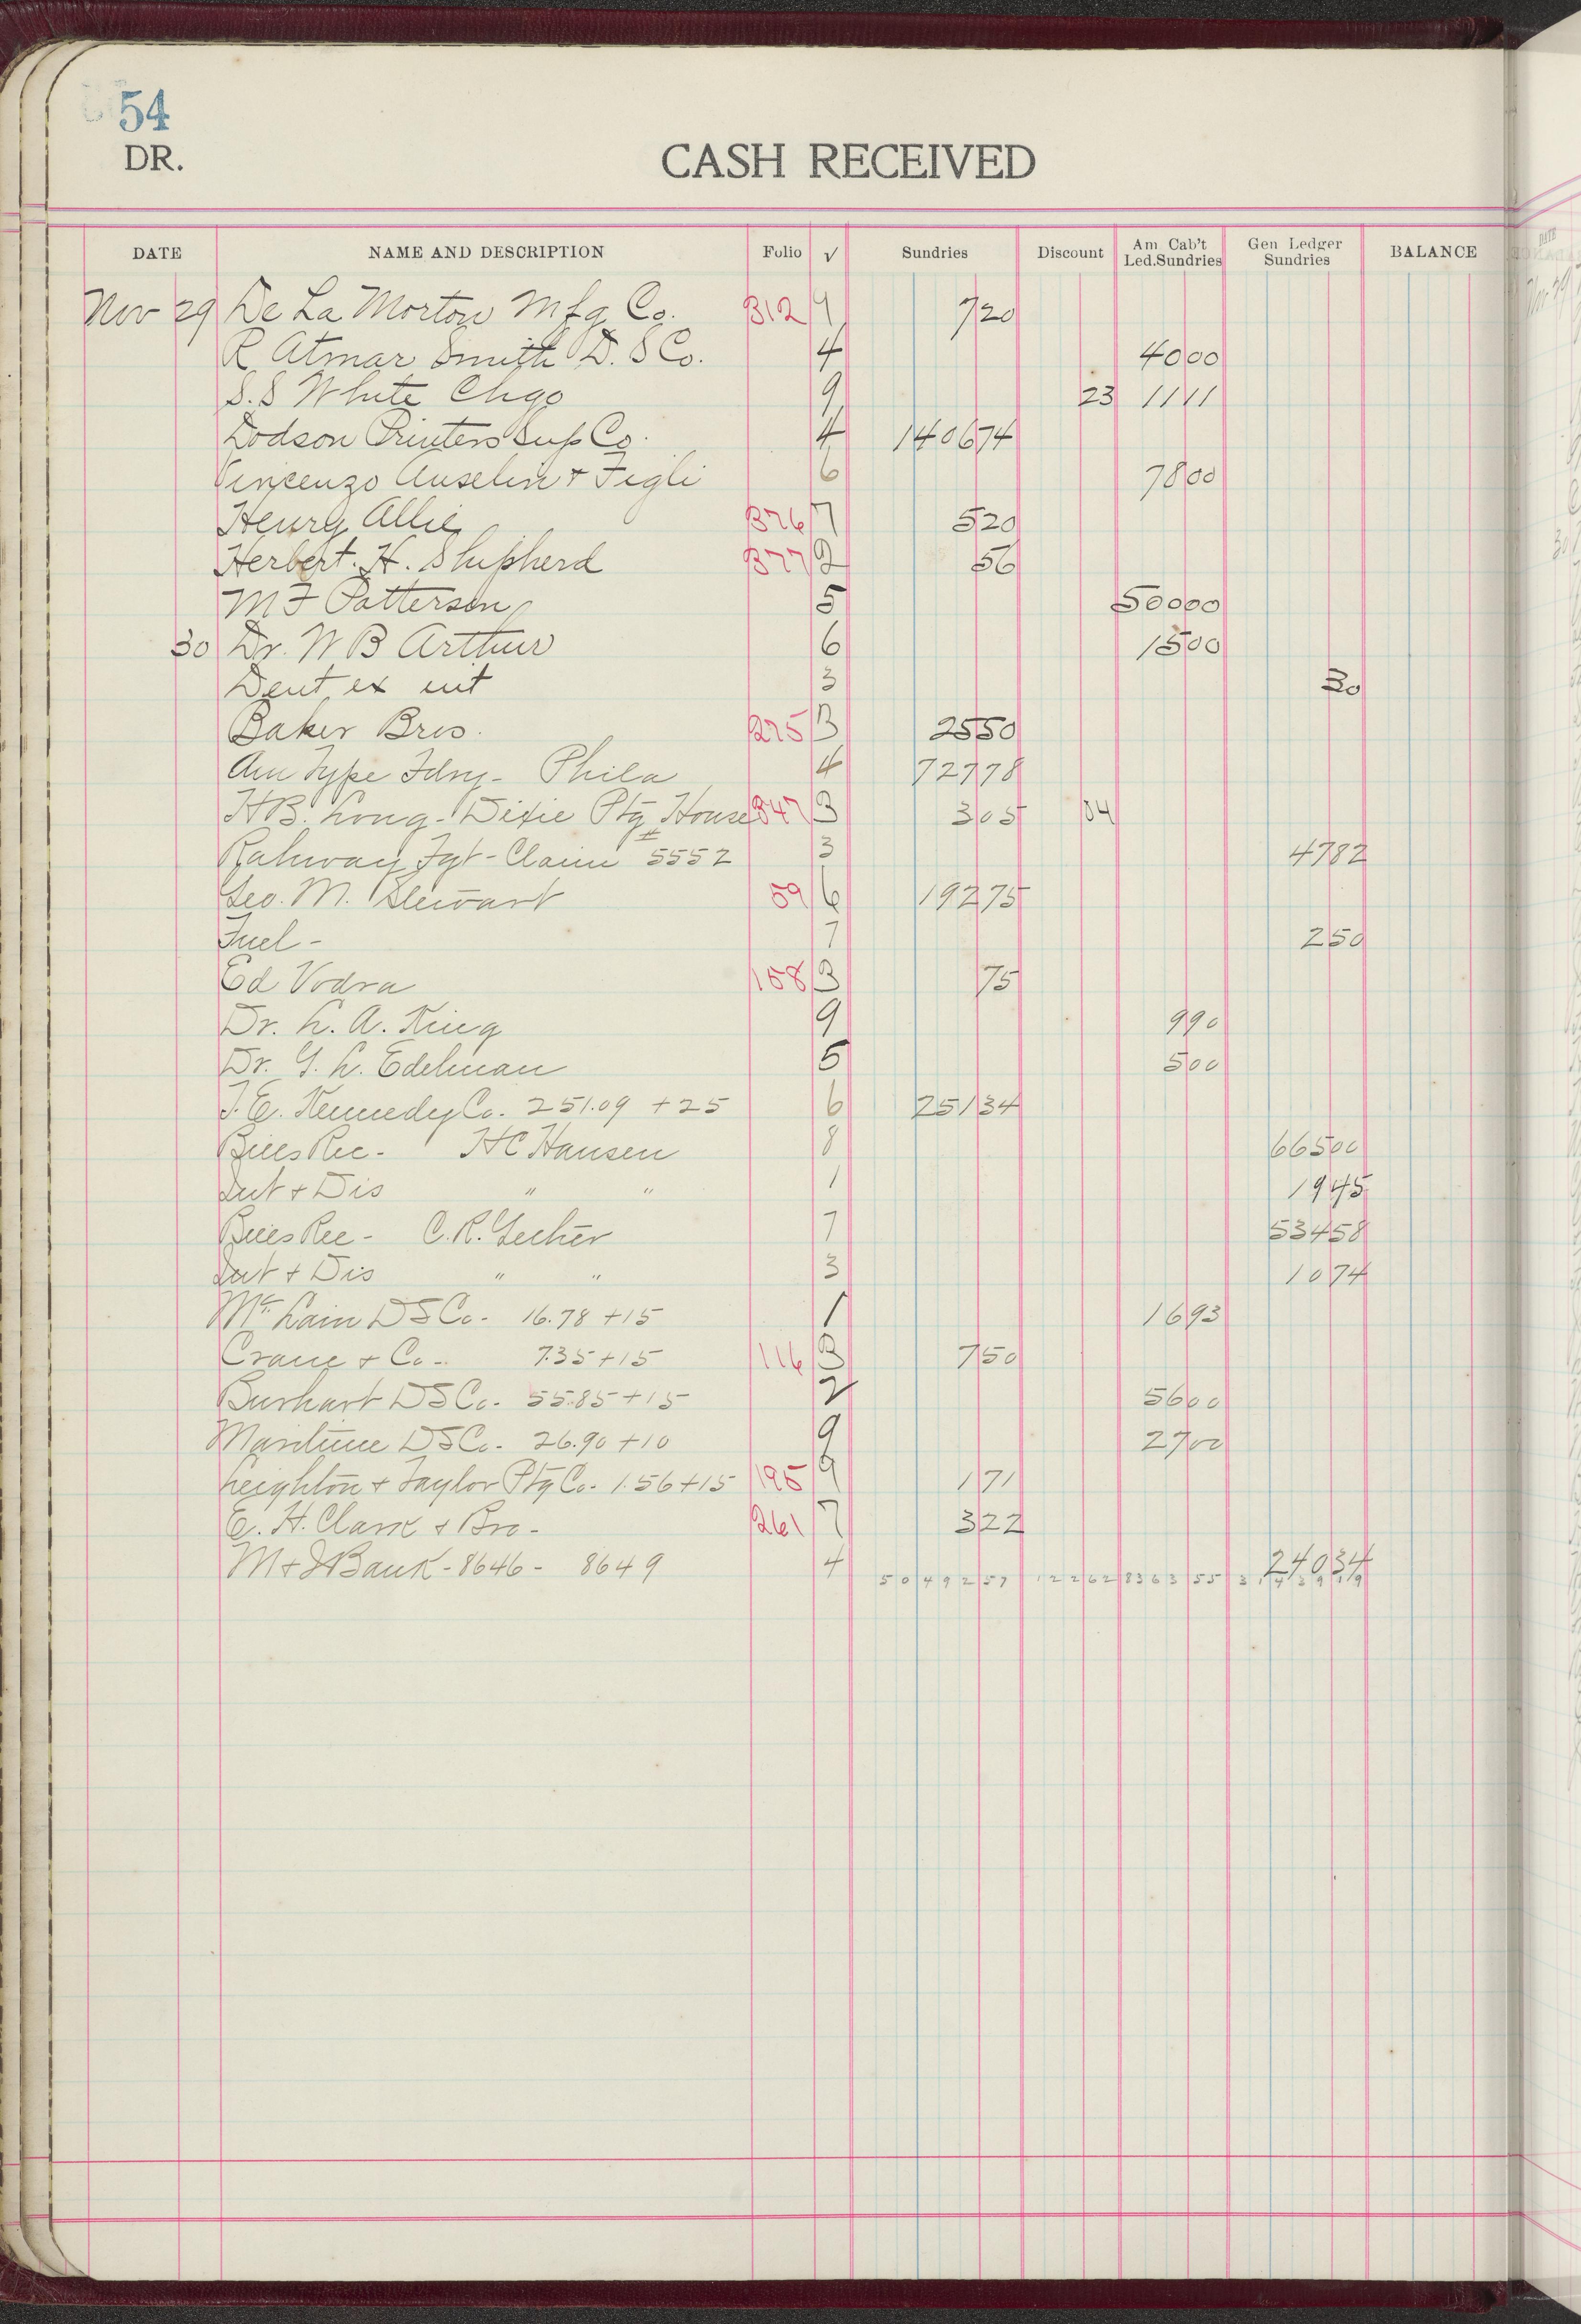 54
DR.
CASH RECEIVED
DATE NAME AND DESCRIPTION Folio √ Sundries Discount Am Cab't Led.Sundries Gen Ledger Sundries BALANCE
Nov 29 De La Morton Mfg Co. 312 9 7 20
R Atmar Smith D. S Co. 4 40 00
S. S White Chgo 9 23 11 11
Dodson Printers Sup Co. 4 1406 74
Vincenzo Anselin + Figli 6 78 00
Henry Allie 376 7 5 20
Herbert. H. Shipherd 377 2 56
M F Patterson 5 500 00
30 Dr. W B Arthur 6 15 00
Dent ex int 3 30
Baker Bros. 275 3 25 50
Am Type Fdry - Phila 4 727 78
H B. Long - Dixie Ptg House 347 3 3 05 04
Rahway Fgt - Claim # 5552 3 47 82
Geo. M. Stewart 59 6 192 75
Fuel - 7 2 50
Ed Vodra 158 3 75
Dr. L. A. King 9 9 90
Dr. G. L. Edelman 5 5 00
T. E. Kennedy Co. 251.09 + 25 6 251 34
Bills Rec - H C Hansen 8 665 00
Int + Dis " " 1 19 45
Bills Rec - C. R. Gether 7 534 58
Int + Dis " " 3 10 74
Mc Lain D S Co - 16.78 + 15 1 16 93
Crane + Co - 7.35 + 15 116 3 7 50
Burkart D S Co - 55.85 + 15 2 56 00
Maritime D S Co - 26.90 + 10 9 27 00
Leighton + Taylor Ptg Co - 1.56 + 15 195 9 1 71
E. H. Clark + Bro - 261 7 3 22
M + J Bank - 8646 - 8649 4 240 34
50492 57 122 62 8363 55 31439 19